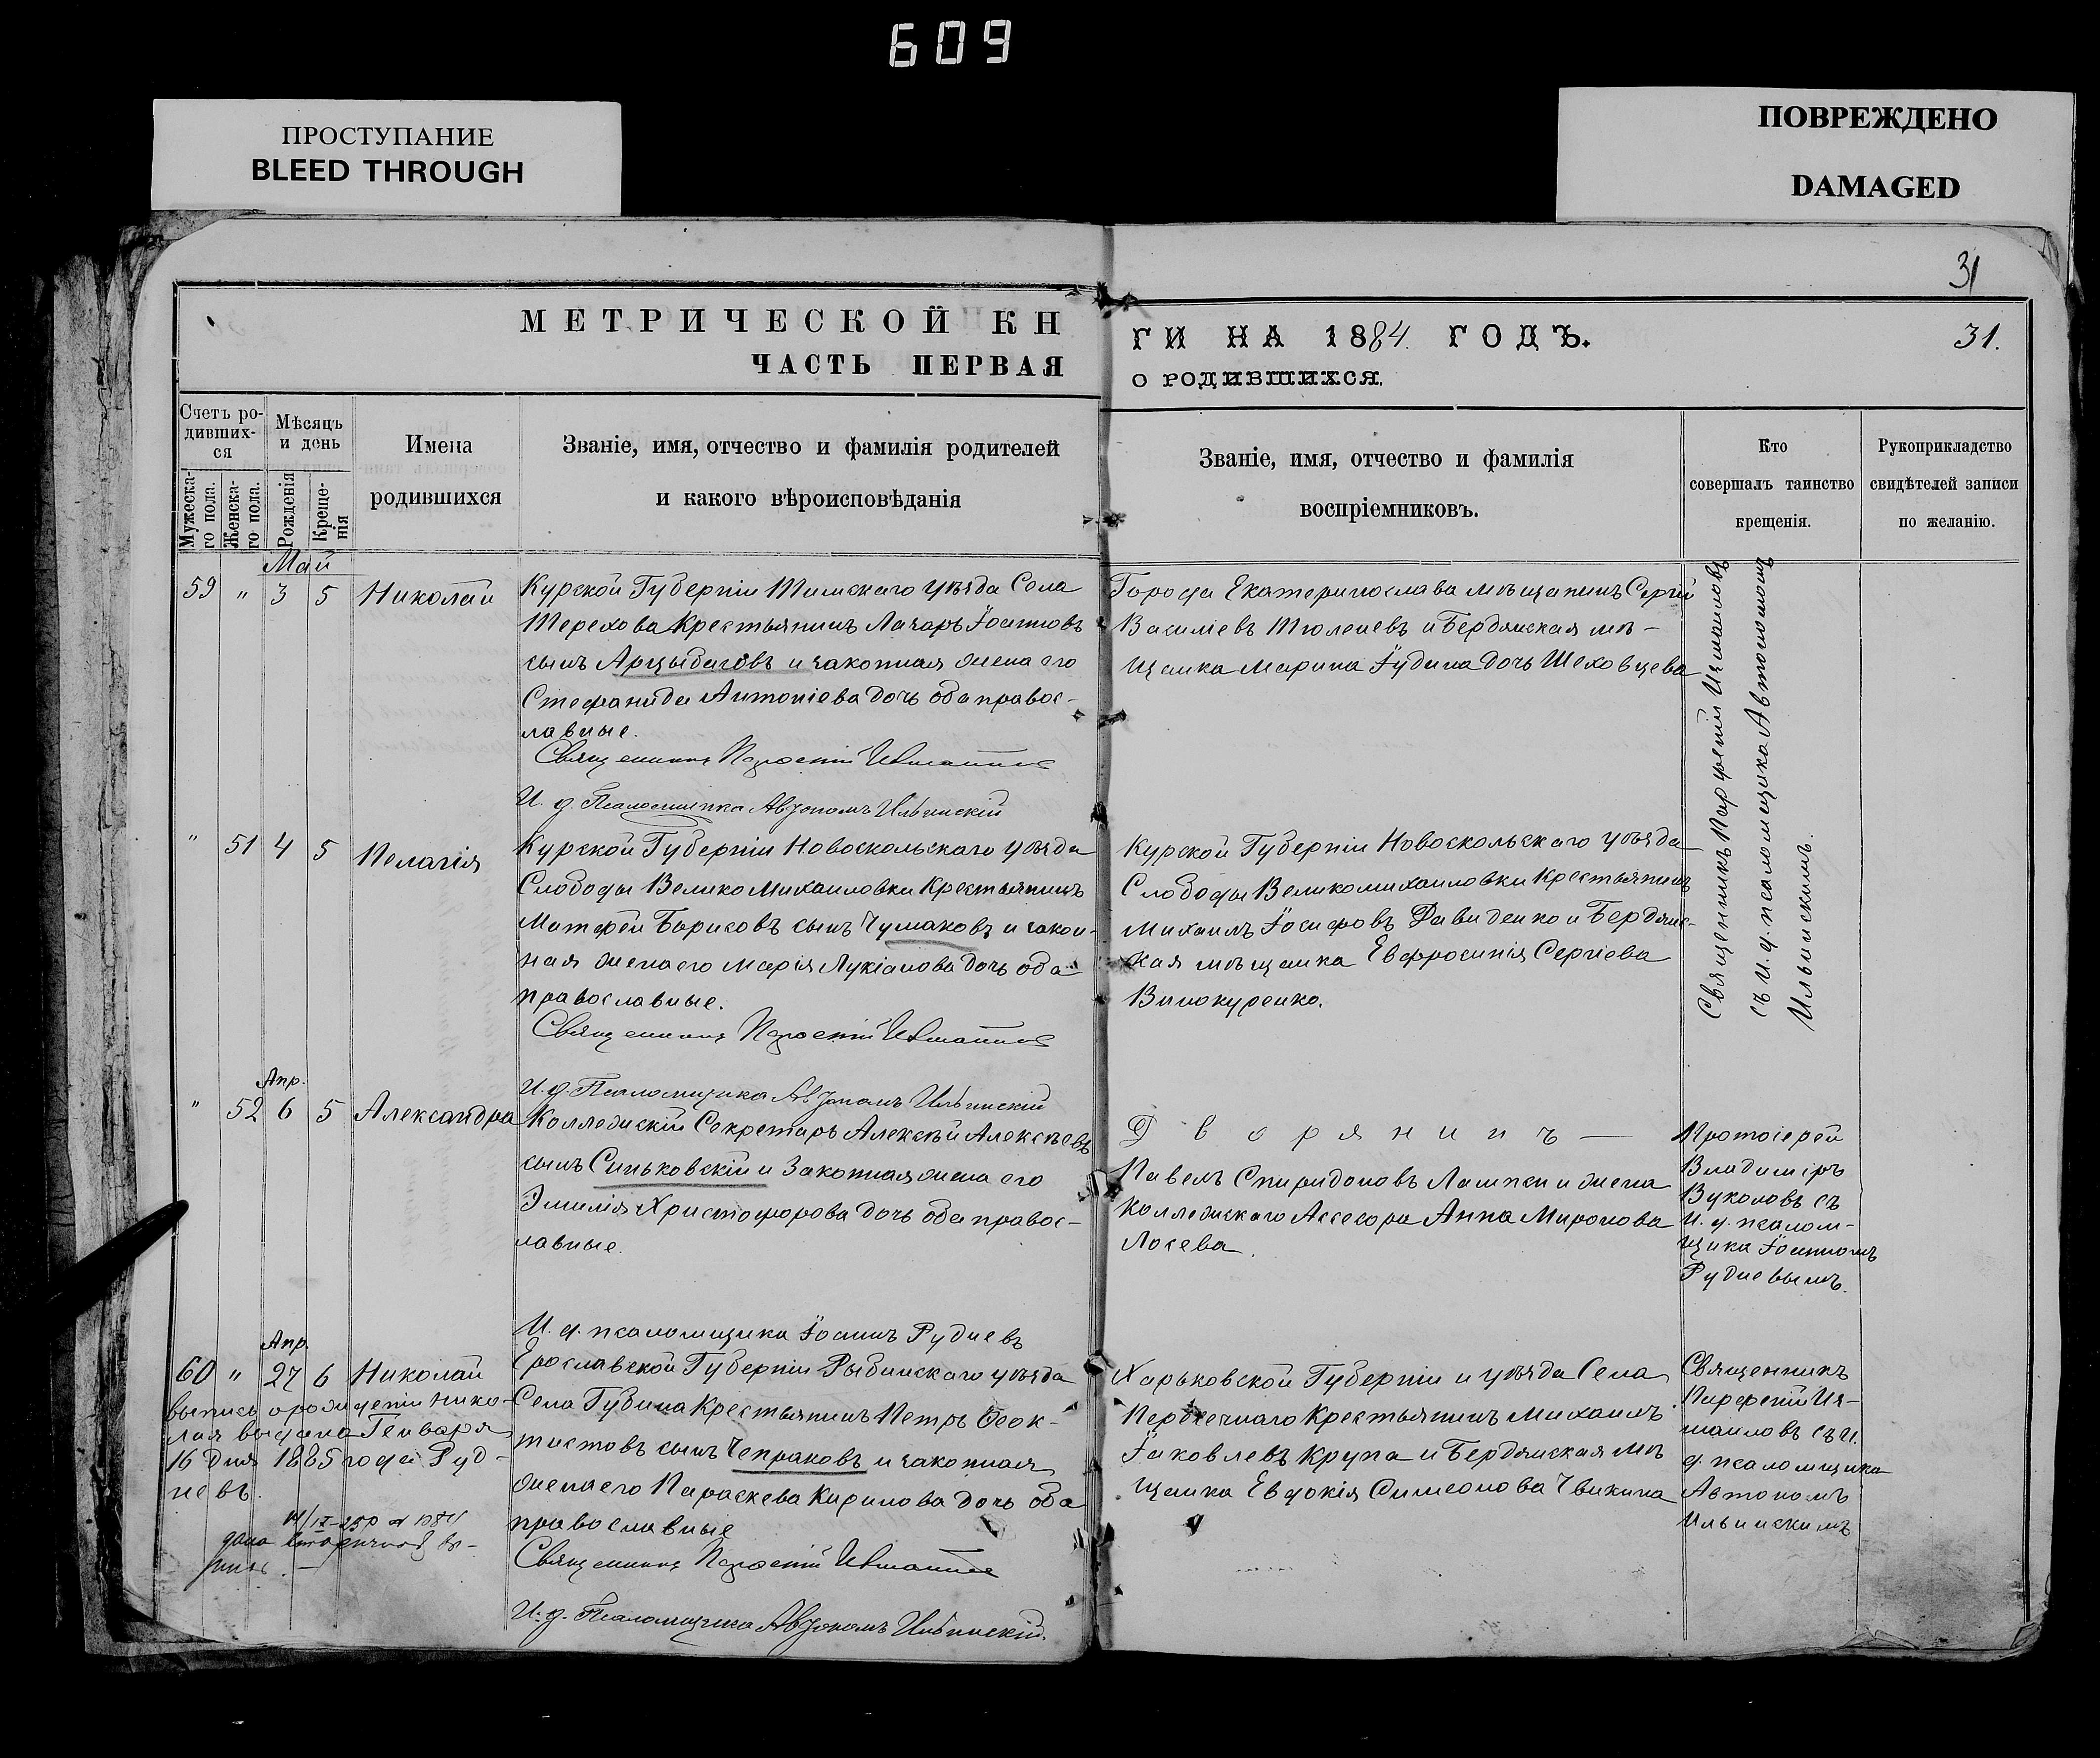 609
ПРОСТУПАНИЕ
BLEED THROUGH
ПОВРЕЖДЕНО
DAMAGED
31
МЕТРИЧЕСКОЙ КН
ЧАСТЬ ПЕРВАЯ
ГИ НА 1884 ГОДЪ.
31.
О РОДИВШИХСЯ.
Счетъ ро-
дивших-
ся
Мужеска-
го пола.
Женска-
го пола.
Мѣсяцъ
и день
Рожденія
Креще-
нія
Имена
родившихся
Званіе, имя, отчество и фамилія родителей
и какого вѣроисповѣданія
Званіе, имя, отчество и фамилія
воспріемниковъ.
Кто
совершалъ таинство
крещенія.
Рукоприкладство
свидѣтелей записи
по желанію.
Май
59 " 3 5 Николай
Курской Губерніи Тимскаго уѣзда Села
Терехова Крестьянинъ Захаръ Іоанновъ
сынъ Арцыбасовъ и законная жена его
Стефанида Антоніева дочь оба правос-
лавные.
Священникъ Парѳеній Измаиловъ
И. д. Псаломщика Автономъ Ильинскій
Города Екатеринослава мѣщанинъ Сергій
Василіевъ Тюленевъ и Бердянская мѣ-
щанка Марина Іудина дочь Шеховцева
Священникъ Парѳеній Измаиловъ
съ И. д. псаломщика Автономомъ
Ильинскимъ.
" 51 4 5 Пелагія
Курской Губерніи Новоскольскаго уѣзда
Слободы Велико Михаиловки Крестьянинъ
Матфей Борисовъ сынъ Чумаковъ и закон-
ная жена его Марія Лукіанова дочь оба
православные.
Священникъ Парѳеній Измаиловъ
И. д. Псаломщика Автономъ Ильинскій
Курской Губерніи Новоскольскаго уѣзда
Слободы Великомихаиловки Крестьянинъ
Михаилъ Іосифовъ Давиденко и Бердянс-
кая мѣщанка Евфросинія Сергіева
Винокуренко.
Апр.
" 52 6 5 Александра
Коллежскій Секретарь Алексѣй Алексѣевъ
сынъ Синьковскій и Законная жена его
Эмилія Христофорова дочь оба правос-
лавные.
И. д. псаломщика Іоаннъ Рудневъ
Дворянинъ —
Павелъ Спиридоновъ Лампси и жена
Коллежскаго Ассесора Анна Миронова
Лосева.
Протоіерей
Владиміръ
Вуколовъ съ
И. д. псалом-
щика Іоанномъ
Рудневымъ.
Апр.
60 " 27 6 Николай
выпись о рожденіи Нико-
лая выдана Генваря
16 дня 1885 года Руд-
невъ.
дана вторичная вы-
пись. —
Ерославской Губерніи Рыбинскаго уѣзда
Села Губина Крестьянинъ Петръ Ѳеок-
тистовъ сынъ Чепраковъ и законная
жена его Параскева Кирилова дочь оба
православные
Священникъ Парѳеній Измаиловъ
И. д. Псаломщика Автономъ Ильинскій.
Харьковской Губерніи и уѣзда Села
Пересечнаго Крестьянинъ Михаилъ
Іаковлевъ Крупа и Бердянская мѣ
щанка Евдокія Симеонова Чвикина
Священникъ
Парѳеній Из-
маиловъ съ И.
д. псаломщика
Автономъ
Ильинскимъ